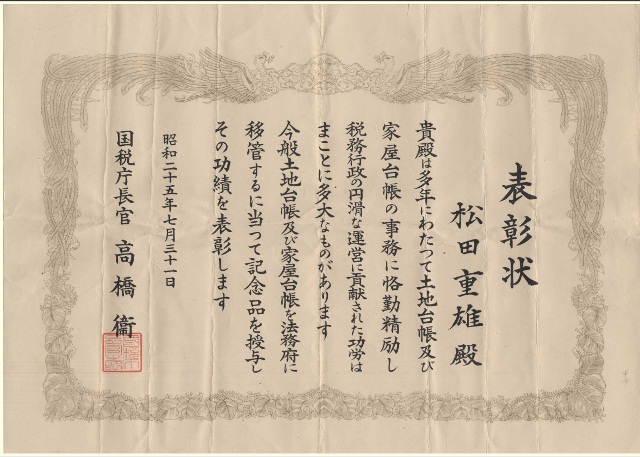 表彰状
松田重雄殿
貴殿は多年にわたつて土地台帳及び
家屋台帳の事務に恪勤精励し
税務行政の円滑な運営に貢献された功労は
まことに多大なものがあります
今般土地台帳及び家屋台帳を法務府に
移管するに当つて記念品を授与し
その功績を表彰します
昭和二十五年七月三十一日
国税庁長官 高橋衞